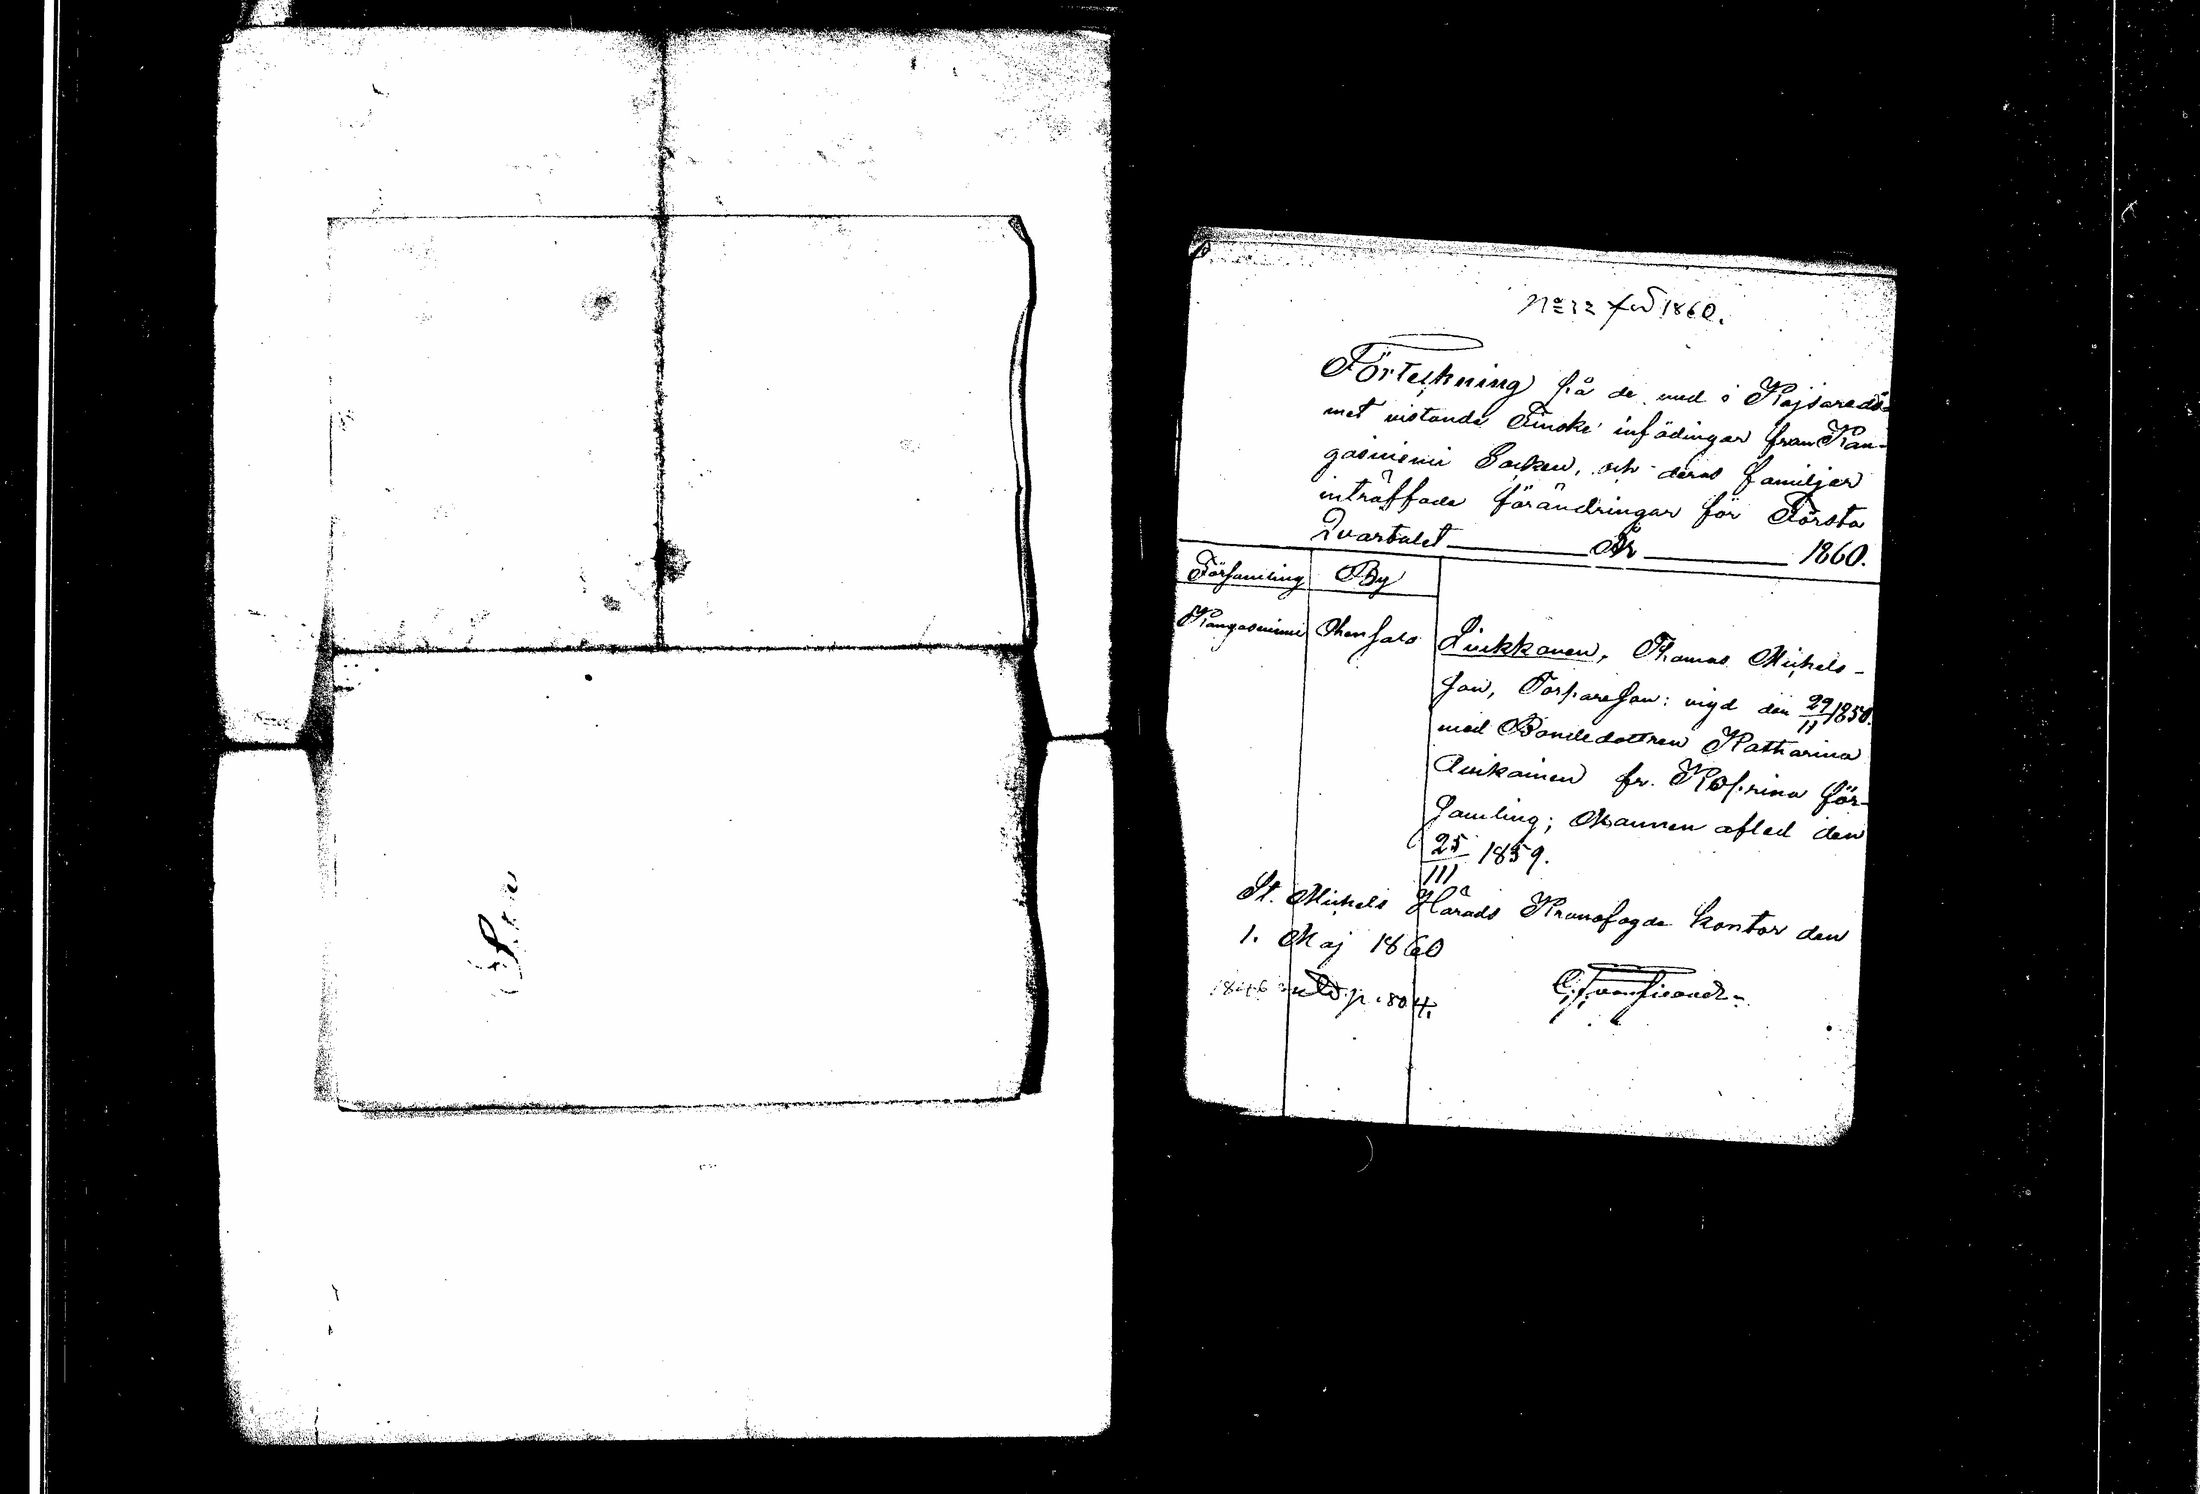 1860.
Förteckning på de med i Kejsaredö-
met vistande Finske infödingar från Kan-
gasniemi Socken, och deras familjer
inträffade förändringar för Första
Qvartalet År 1860.
Församling By
Kangasniemi Ohensalo Luikkonen, Thomas Michels-
son, Torpareson: vigd den 29/11 1850.
med Bondedottren Katharina
Auikainen fr. Koprina för-
samling; Mannen afled den
25/III 1859.
St. Michels Härads Kronofogde kontor den
1. Maj 1860
1846 p. 804.